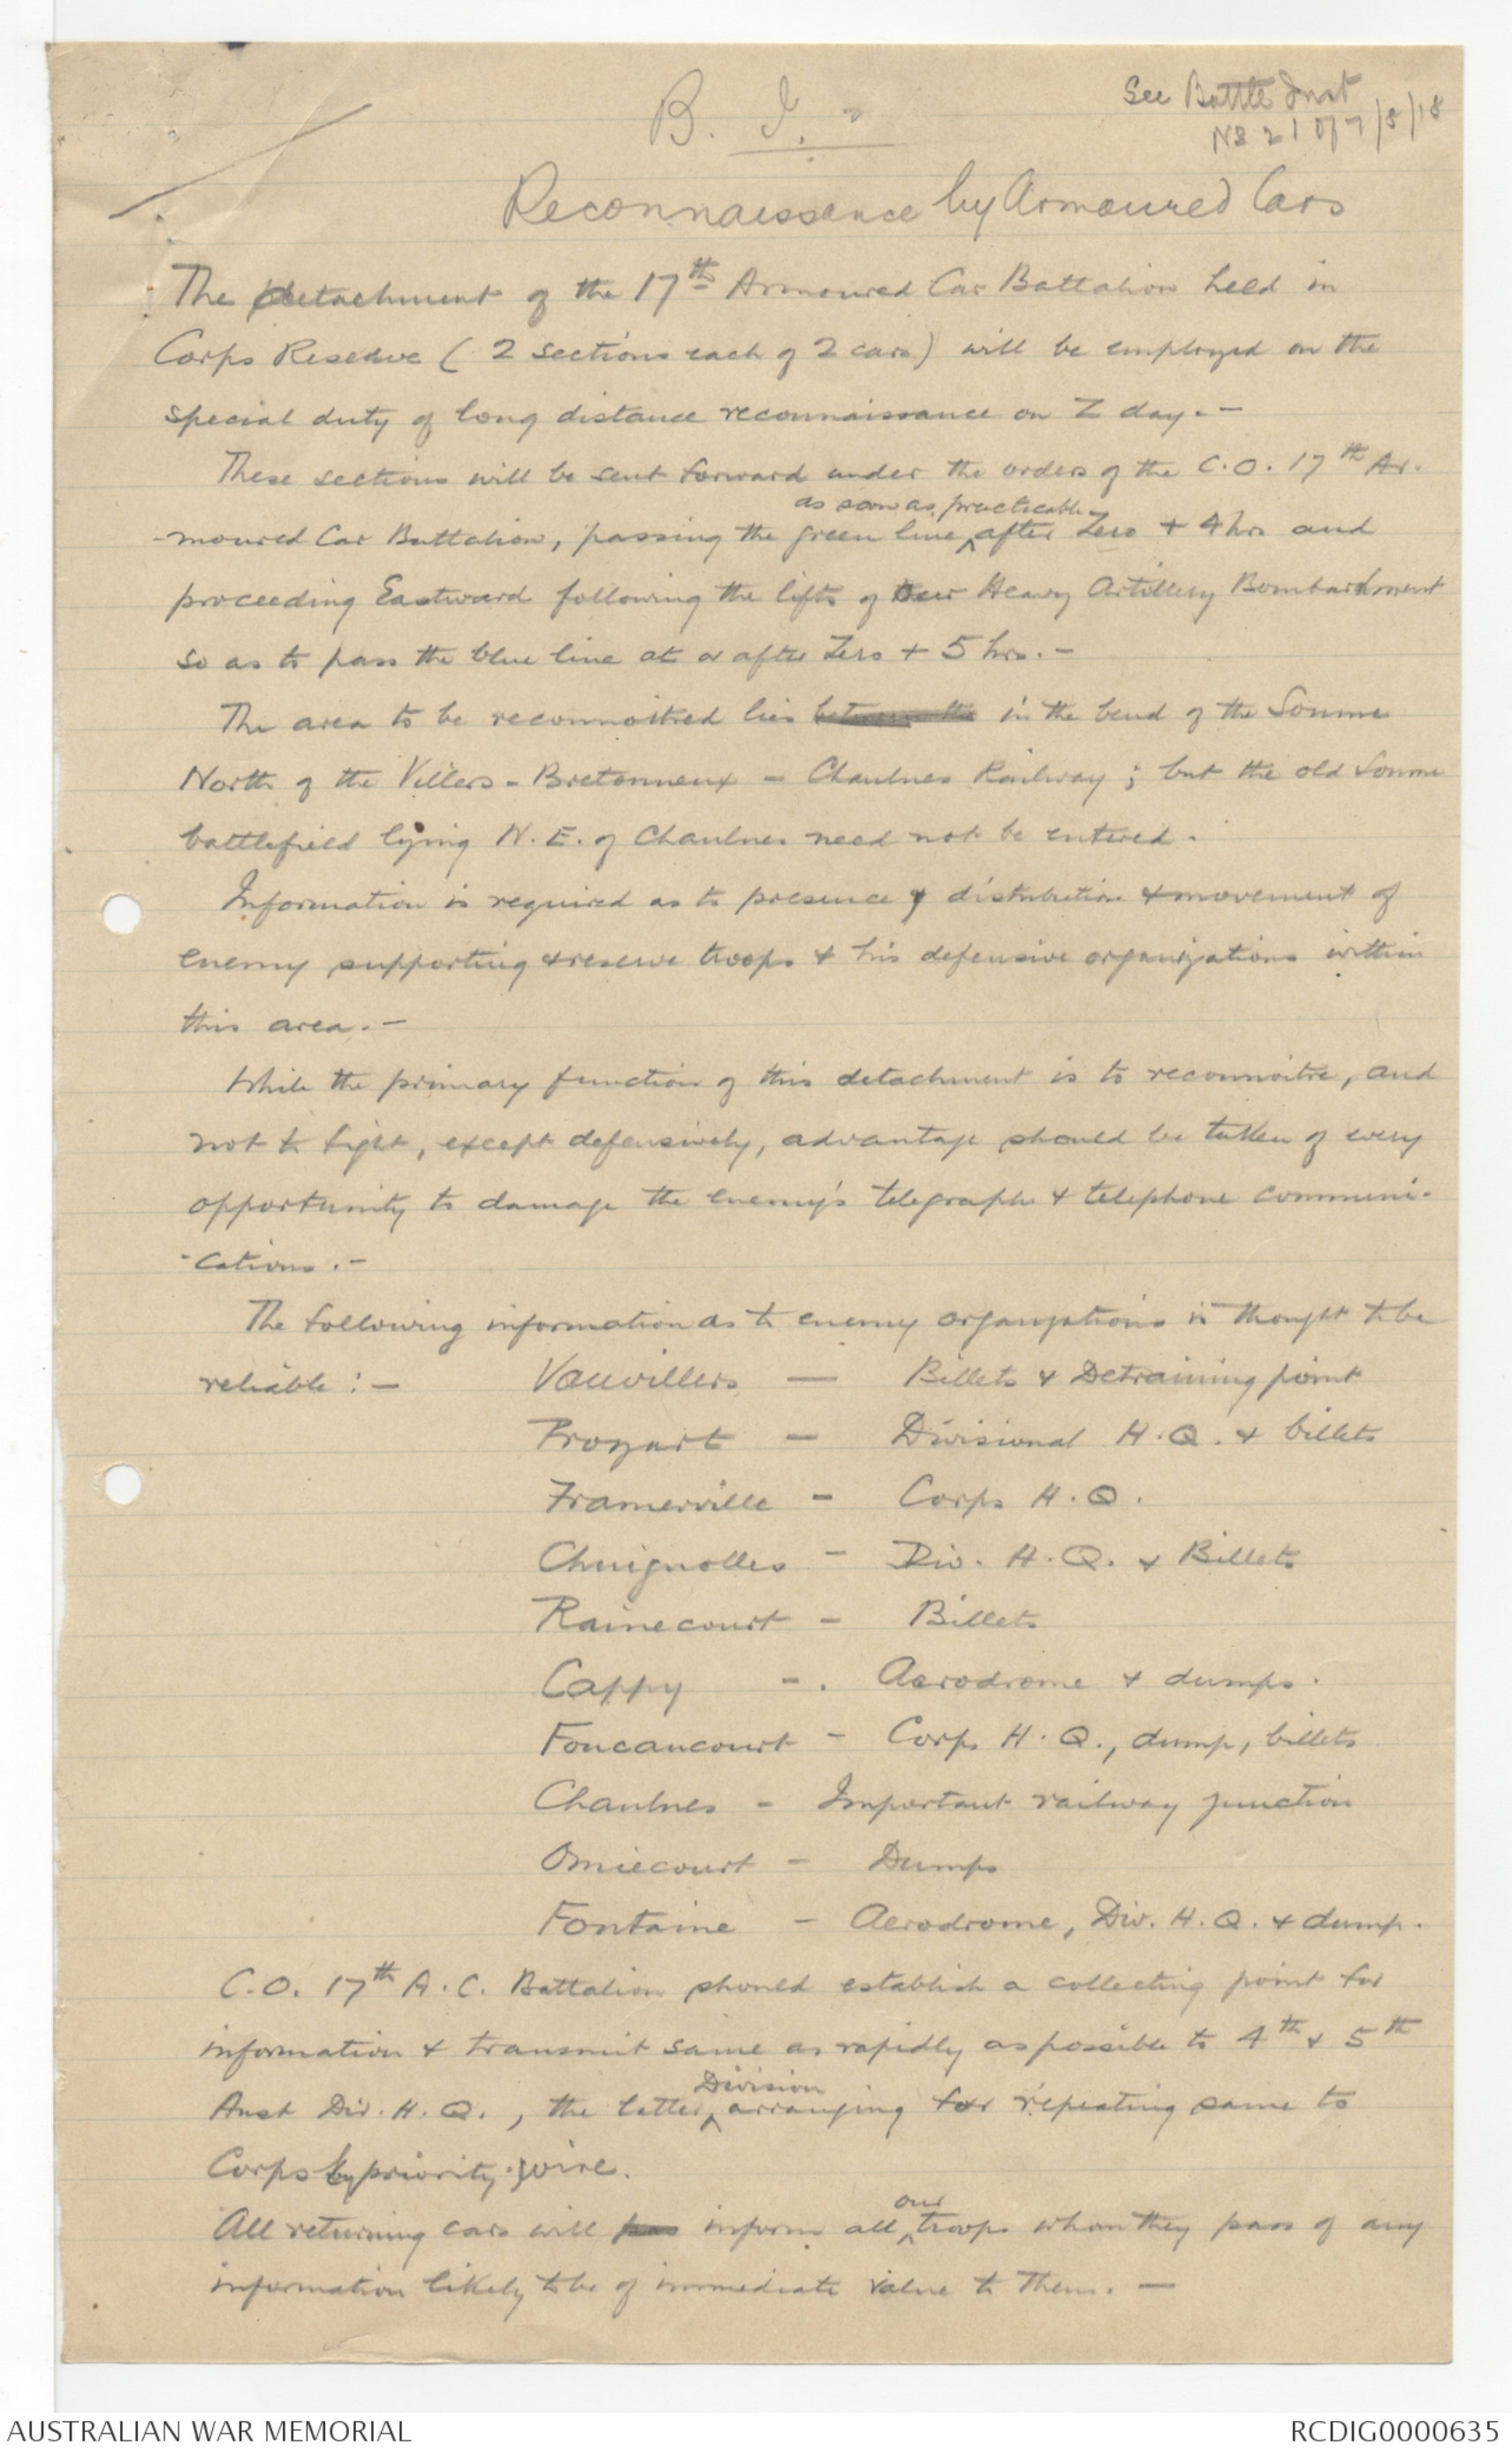 See Battle Inst
No 21 of 7/8/18
B. I.
Reconnaissance by Armoured Cars
The detachment of the 17th Armoured Car Battalion held in
Corps Reserve (2 sections each of 2 cars) will be employed on the
special duty of long distance reconnaissance on Z day.-
These sections will be sent forward under the orders of the C.O. 17th Ar-
as soon as practicable
-moured Car Battalion, passing the green line, after Zero + 4 hrs and
proceeding Eastward following the lifts of our Heavy Artillery Bombardment
so as to pass the blue line at or after Zero + 5 hrs.-
The area to be reconnoitred lies in the bend of the Somme
North of the Villers-Bretonneux - Chaulnes Railway; but the old Somme
battlefield lying N.E. of Chaulnes need not be entered.
Information is required as to presence distribution & movement of
enemy supporting & reserve troops & his defensive organizations within
this area.-
While the primary function of this detachment is to reconnoitre, and
not to fight, except defensively, advantage should be taken of every
opportunity to damage the enemy's telegraph & telephone communi-
-cations.-
The following information as to enemy organizations is thought to be
reliable:- Vauvillers - Billets & Detraining point
Proyart - Divisional H.Q. & billets
Framerville - Corps H.Q.
Chuignolles - Div. H.Q. & Billets
Rainecourt - Billets
Cappy -. Aerodrome & dumps.
Foucaucourt - Corps H.Q., dump, billets
Chaulnes - Important railway junction
Omiecourt - Dumps
Fontaine - Aerodrome, Div. H.Q. & dump.
C.O. 17th A.C. Battalion should establish a collecting point for
information & transmit same as rapidly as possible to 4th & 5th
Division
Aust Div. H.Q., the latter arranging for repeating same to
Corps by priority wire.
our
All returning cars will inform all troops whom they pass of any
information likely to be of immediate value to them.-
AUSTRALIAN WAR MEMORIAL
RCDIG0000635